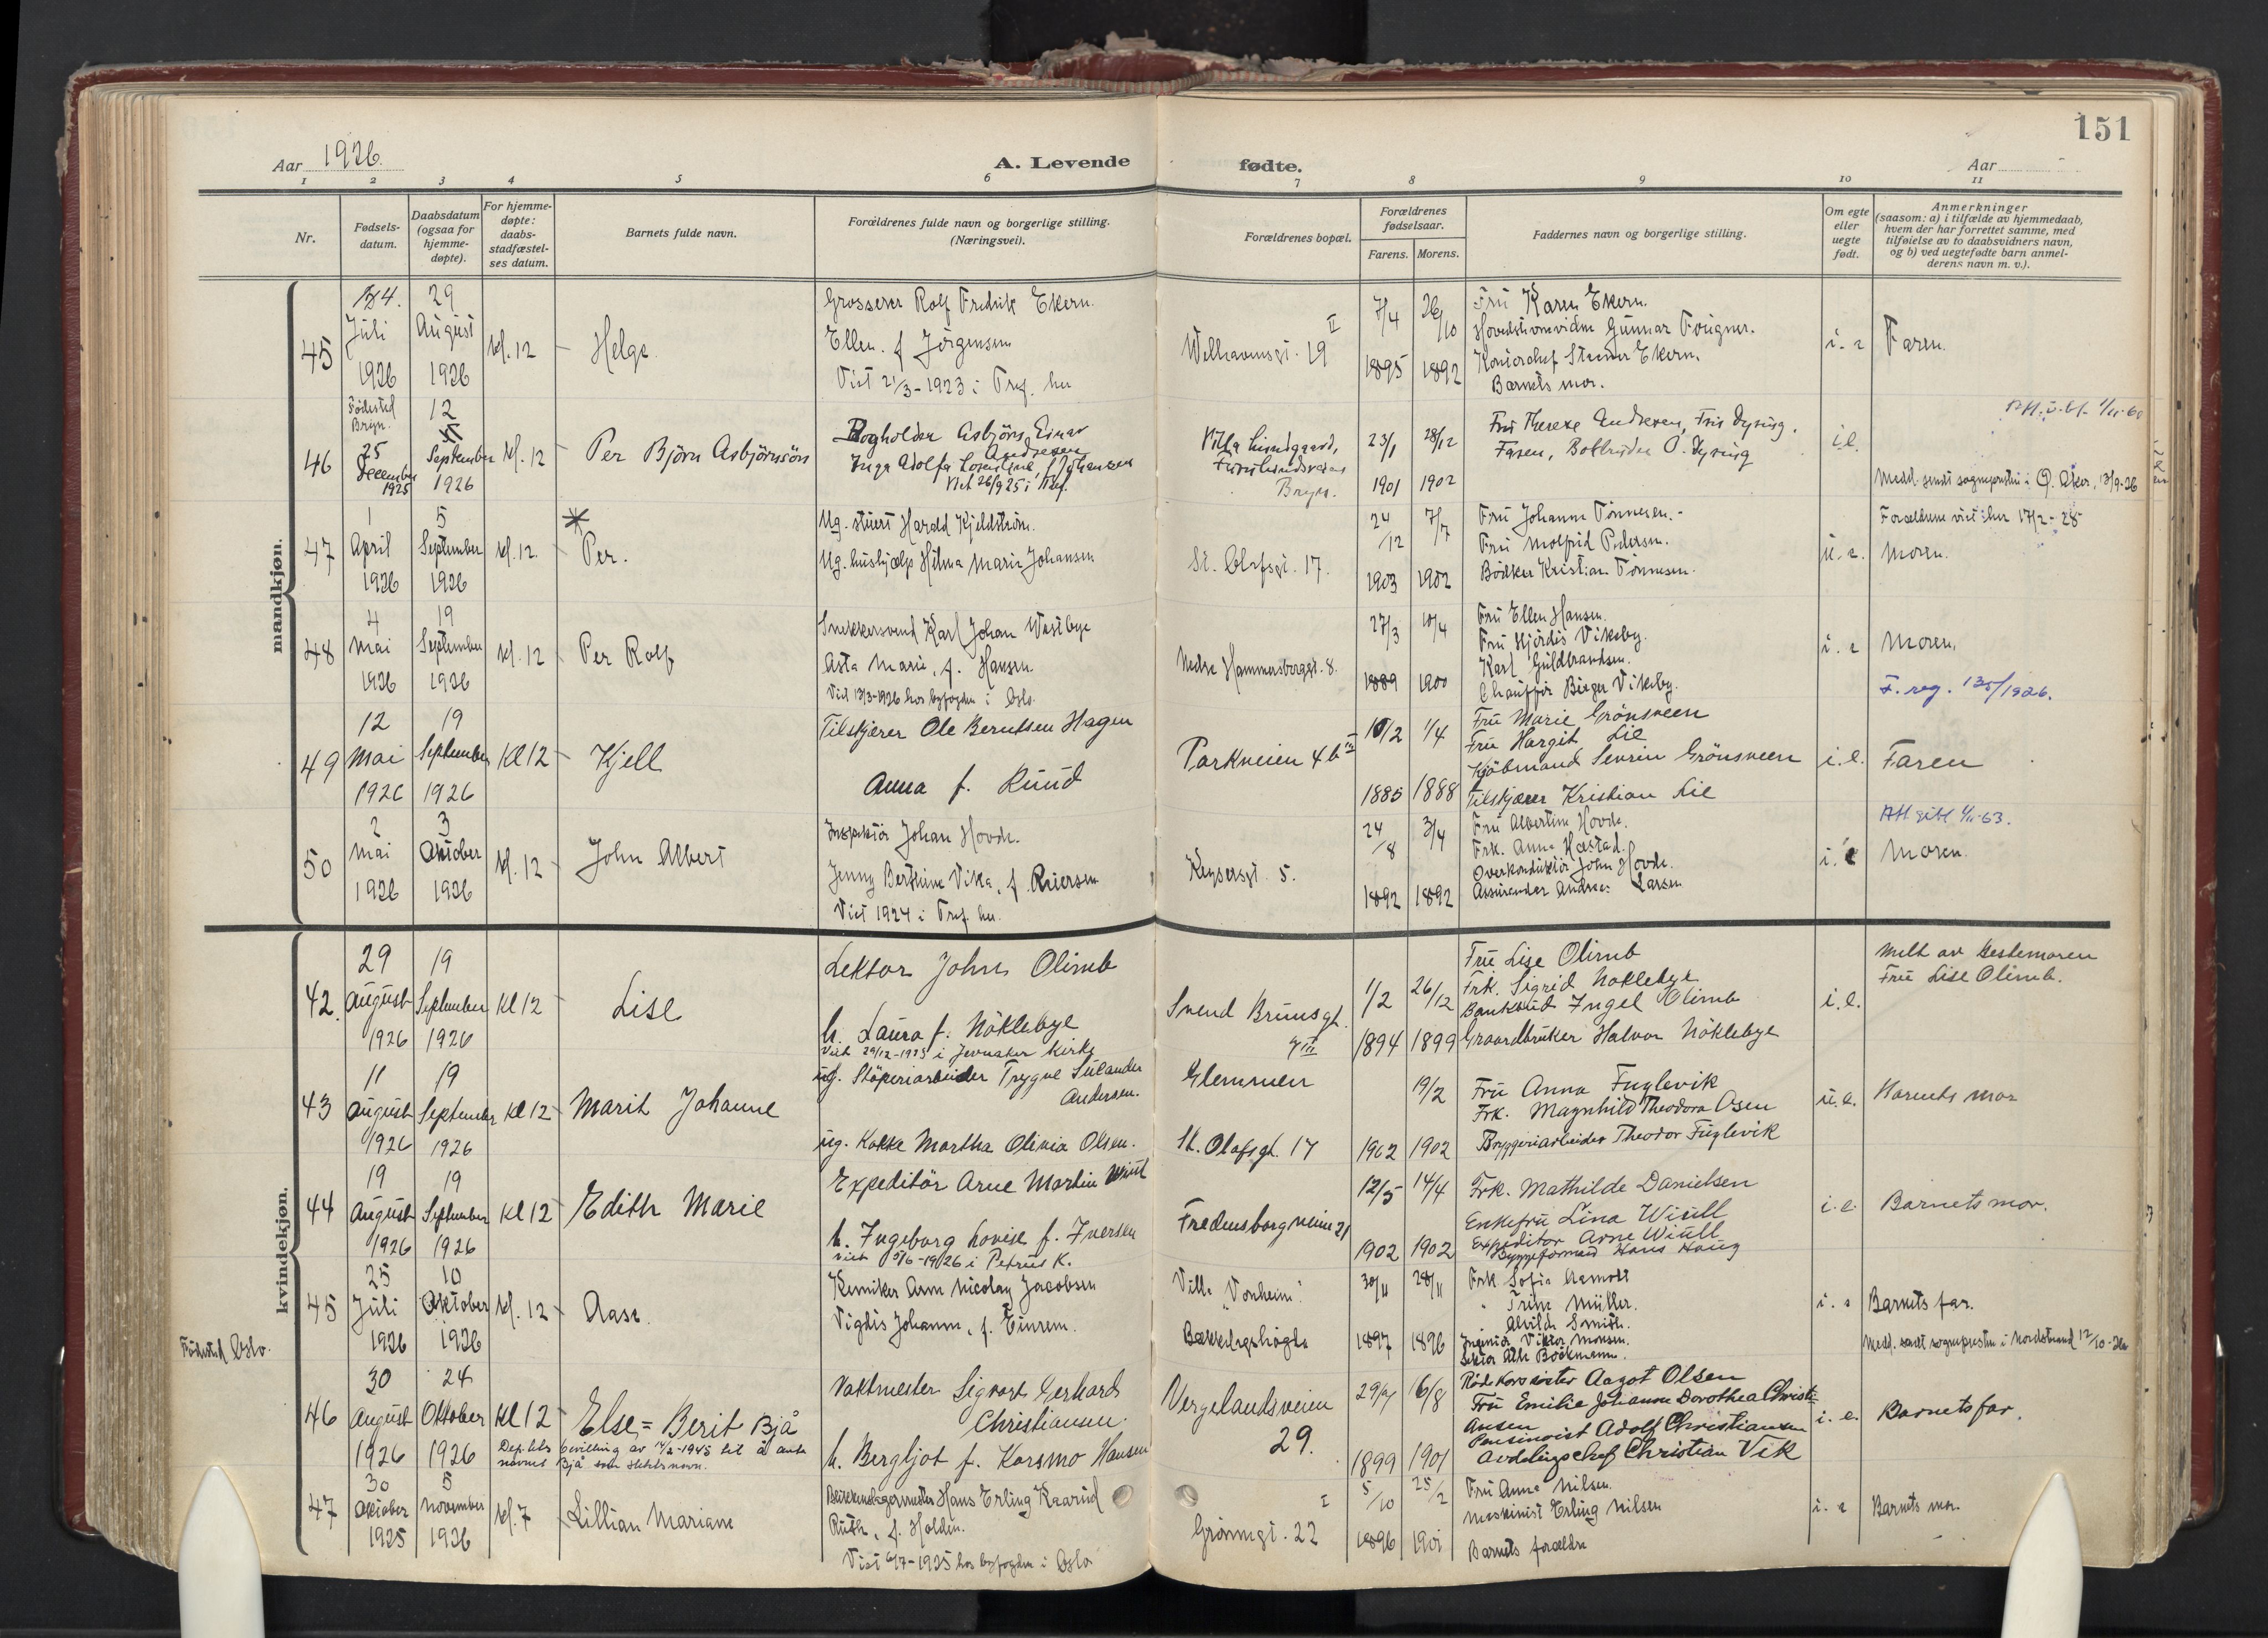 151
Aar 1926.
A. Levende
fødte.
Aar
1 2 3 4 5 6 7 8 9 10 11
Nr.
Fødsels-
datum.
Daabsdatum
(ogsaa for
hjemme-
døpte).
For hjemme-
døpte:
daabs-
stadfæstel-
ses datum.
Barnets fulde navn.
Forældrenes fulde navn og borgerlige stilling.
(Næringsvei).
Forældrenes bopæl.
Forældrenes
fødselsaar.
Farens. Morens.
Faddernes navn og borgerlige stilling.
Om egte
eller
uegte
født.
Anmerkninger
(saasom: a) i tilfælde av hjemmedaab,
hvem der har forrettet samme, med
tilføielse av to daabsvidners navn,
og b) ved uegtefødte barn anmel-
derens navn m. v.).
mandkjøn.
45
Juli
1926
29
August
1926
kl. 12
Helge
Grosserer Rolf Fredrik Ekern.
Ellen. f. Jörgensen
Viet 21/3-1923 i Tref. her
Welhavensgt. 19 II
7/4
1895
26/10
1892
Fru Karen Ekern.
Gunnar Fougner.
Kontorchef Steener Ekern.
Barnets mor.
i. e
Faren.
46
Fødested
Bryn.
25
December
1925
12
September
1926
kl. 12
Per Björn Asbjörnsön
Bogholder Asbjörn Einar
Andresen
Inga Adolfa Losentine, f. Johansen
Viet 26/9 25 i Tref.
Villa Lundgaard,
Bryn.
23/1
1901
28/12
1902
Fru Therese Andresen, Fru Dysing.
Faren, O. Dysing
i.e.
Medd. sendt sognepresten i Ø. Aker, 13/9-26
47
1
April
1926
5
September
1926
kl. 12.
Per.
Ug. stuert Harald Kjeldström.
Ug. hushjælp Hilma Marie Johansen
St. Olafsgt. 17.
24/12
1903
7/7
1902
Fru Johanne Tönnesen.
Fru Molfrid Pedersen.
Bödker Kristian Tönnesen.
u. e.
Forældrene viet her 17/2-28
Moren.
48
4
Mai
1926
19
September
1926
kl. 12
Per Rolf
Snekkersvend Karl Johan Westbye
Asta Marie, f. Hansen
Viet 13/3-1926 hos byfogden i Oslo.
Nedre Hammersborggt. 8.
27/3
1889
10/4
1900
Fru Ellen Hansen.
Fru Hjördis Vikeby.
Karl Guldbrandsen.
Chauffør Birger Vikeby.
i. e
Moren.
F. reg. 135/1926.
49
12
Mai
1926
19
September
1926
Kl 12
Kjell
Tilskjærer Ole Berntsen Hagen
Anna f. Ruud
Parkveien 4 b III
10/2
1885
1/4
1888
Fru Marie Grönsveen
Fru Margit Lie
Kjöbmand Severin Grönsveen
Tilskjærer Kristian Lie
i.e.
Faren
50
2
Mai
1926
3
Oktober
1926
kl. 12
John Albert
Inspektör Johan Hovde.
Jenny Berthine Vika, f. Reiersen
Viet 1924 i Tref. her.
Keysersgt. 5.
24/8
1892
3/4
1892
Fru Albertine Hovde.
Frk. Anna Hastad.
Overkonduktör John Hovde.
Assurandör Andreas Larsen
i. e
Moren.
kvindekjøn.
42.
29
August
1926
19
September
1926
Kl 12
Lise
Lektor Johns Olimb
h. Laura f. Nöklebye
Viet 29/12-1925 i Jevnaker Kirke
Svend Bruunsgt.
1/2
1894
26/12
1899
Fru Lise Olimb
Frk. Sigrid Noklebye
Ingel Olimb
Graardbruker Halvor Nöklebye
i.e.
Meldt av bestemoren
Fru Lise Olimb.
43
11
August
1926
19
September
1926
Kl 12
Marit Johanne
ug. Stöperiarbeider Trygve Sulander
Andersen.
ug. Kokke Martha Olivia Olsen.
Glemmen
St. Olafsgt. 17
1902
19/2
1902
Fru Anna Fuglevik
Frk. Magnhild Theodora Osen
Bryggeriarbeider Theodor Fuglevik
u.e.
Barnets mor
44
19
August
1926
19
September
1926
Kl 12
Edith Marie
Expeditör Arne Martin Wiull
h. Ingeborg Lovise f. Iversen
viet 5/6-1926 i Petrus K.
Fredensborgveien 21
12/5
1902
14/4
1902
Frk. Mathilde Danielsen
Enkefru Lina Wiull
Expeditör Arne Wiull
Byggeformand Hans Haug
i.e.
Barnets mor.
45
Fødested Oslo.
25
Juli
1926
10
Oktober
1926
kl. 12
Aase
Kemiker Arne Nicolay Jacobsen
Vigdis Johanne, f. Einrem.
Villa "Vonheim".
Bækkelagshögda
30/11
1897
28/11
1896
Frk. Sofie Aamodt
" Trine Müller.
" Alvilde Smith.
Ingeniör Viktor Monsen.
Lektor Alle Böckmann.
i. e
Barnets far.
Medd. sendt sognepresten i Nordstrand 12/10-26
46
30
August
1926
24
Oktober
1926
Kl 12
Else = Berit Bjå
Dep.tets bevilling av 14/2-1945 til å anta
navnet Bjå som slektsnavn.
Vaktmester Sigvart Gerhard
Christiansen.
h. Bergljot f. Korsmo Hansen
Vergelandsveien
29.
1899
6/8
1901
Röde Kors söster Aagot Olsen
Fru Emilie Johanne Dorothea Christi-
ansen
Pensionist Adolf Christiansen
Avdelingschef Christian Vik
i. e.
Barnets far.
47
30
Oktober
1925
5
November
1926
kl. 7
Lillian Mariane
Blikkenslagermester Hans Erling Kaarud
Ruth, f. Holden.
Viet 6/7-1925 hos byfogden i Oslo
Grönnegt. 22 I
5/10
1896
25/2
1901
Fru Anna Nilsen.
Maskinist Erling Nilsen
Barnets forældre
i. e
Barnets mor.